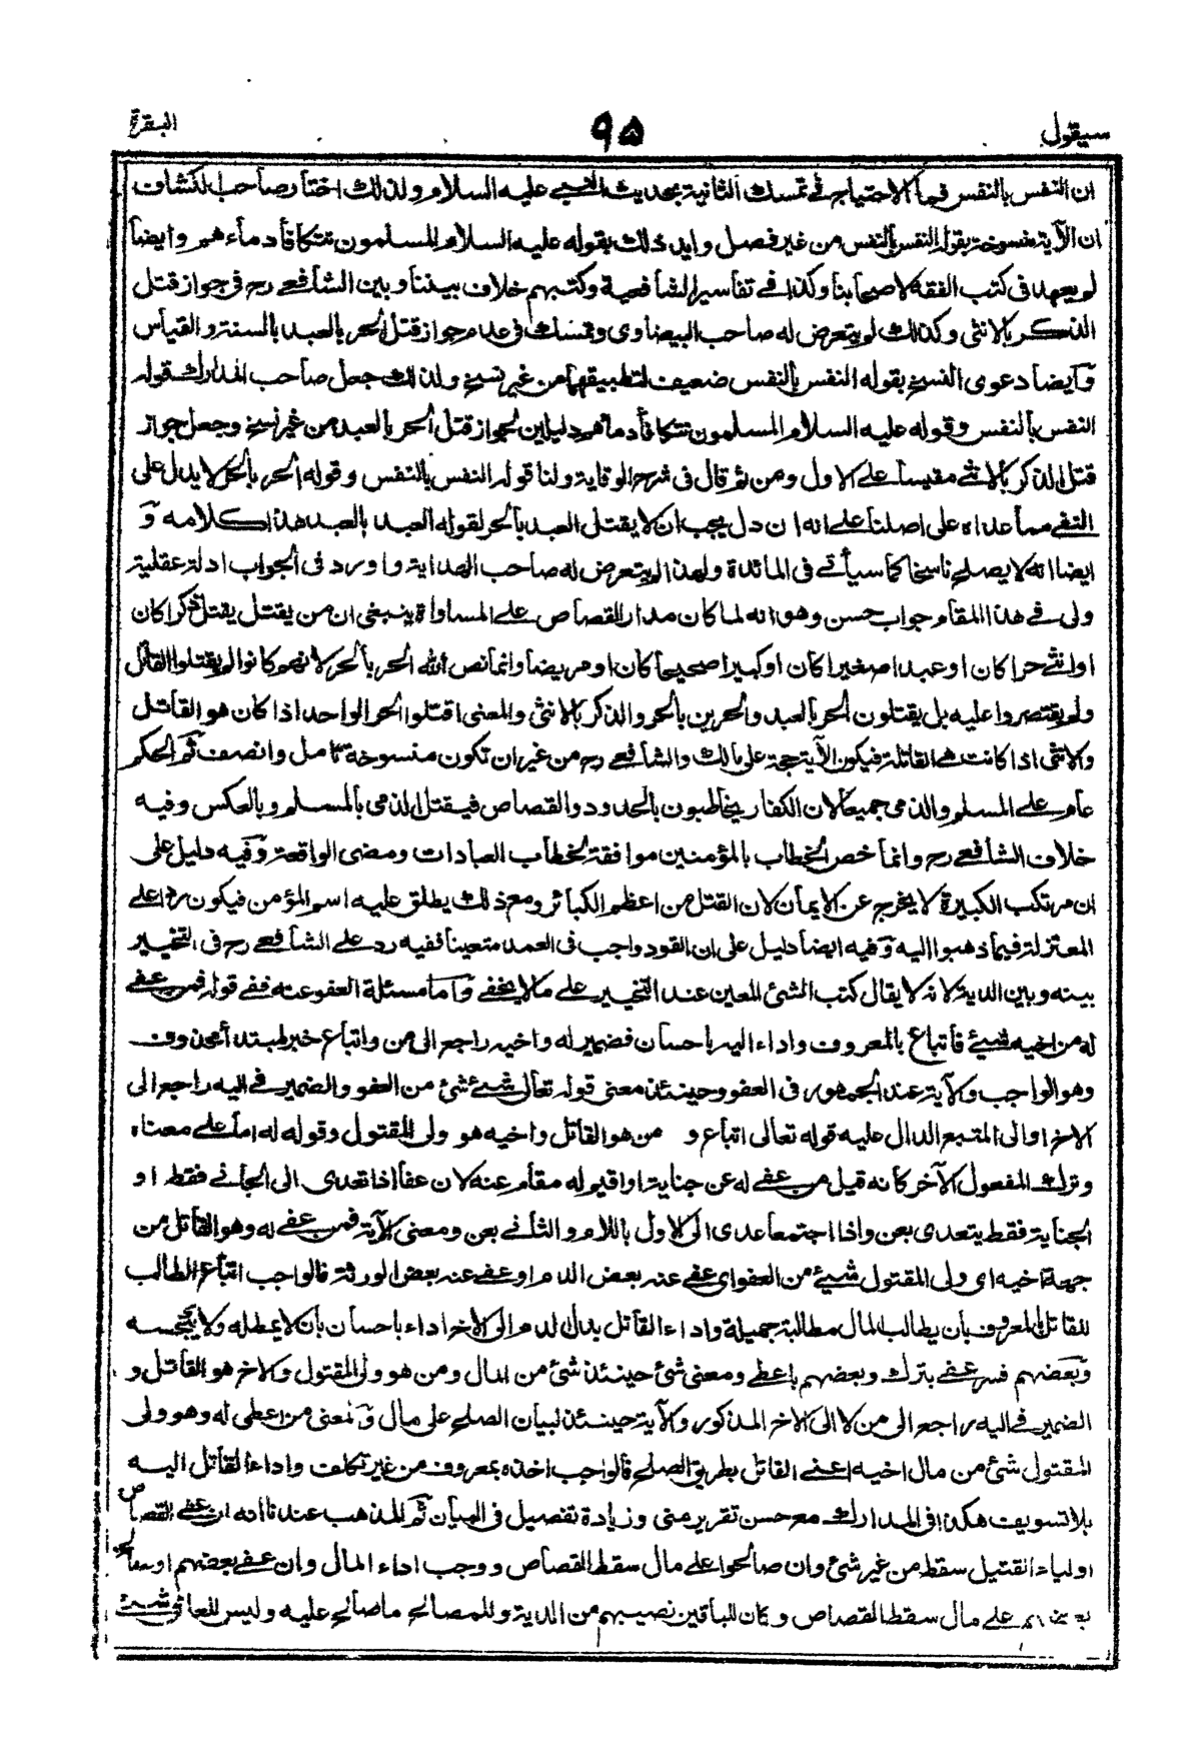 سيقول
٩٥
البقرة
ان النفس بالنفس فما الاحتياج في تمسك الثانية بحديث النبي عليه السلام ولذلك اختار صاحب الكشاف
ان الآية منسوخة بقوله النفس بالنفس من غير فصل وايد ذلك بقوله عليه السلام المسلمون تتكافأ دماءهم وايضا
لم يعهد فى كتب الفقه لاصحابنا وكذا في تفاسير الشافعية وكتبهم خلاف بيننا وبين الشافعي رح فى جواز قتل
الذكر بالانثى وكذلك لم يتعرض له صاحب البيضاوى وتمسك فى عدم جواز قتل الحر بالعبد بالسنة والقياس
وايضا دعوى النسخ بقوله النفس بالنفس ضعيف لتطبيقهما من غير نسخ ولذلك جعل صاحب المدارك قوله
النفس بالنفس وقوله عليه السلام المسلمون تتكافأ دماؤهم دليلين لجواز قتل الحر بالعبد من غير نسخ وجعل جواز
قتل الذكر بالانثى مقيسا على الاول ومن ثم قال فى شرح الوقاية ولنا قوله النفس بالنفس وقوله الحر بالحر لا يدل على
النفي مما عداه على اصلنا على انه ان دل يجب ان لا يقتل العبد بالحر لقوله العبد بالعبد هذا كلامه و
ايضا انه لا يصلح ناسخا كما سيأتي فى المائدة ولهذا لم يتعرض له صاحب الهداية واورد فى الجواب ادلة عقلية
ولى في هذا المقام جواب حسن وهو انه لما كان مدار القصاص على المساواة ينبغى ان من يقتل يقتل ذكرا كان
او انثى حرا كان او عبدا صغيرا كان او كبيرا صحيحا كان او مريضا وانما نص الله الحر بالحر لانهم كانوا لم يقتلوا القاتل
ولم يقتصروا عليه بل يقتلون الحر بالعبد والحرين بالحر والذكر بالانثى والمعنى اقتلوا الحر الواحد اذا كان هو القاتل
والانثى اذا كانت هي القاتلة فيكون الآية حجة على مالك والشافعي رح من غير ان تكون منسوخة تامل وانصف ثم الحكم
عام على المسلم والذمى جميعا لان الكفار يخاطبون بالحدود والقصاص فيقتل الذمى بالمسلم وبالعكس وفيه
خلاف الشافعي رح وانما خص الخطاب بالمؤمنين موافقة لخطاب العبادات ومضى الواقعة وفيه دليل على
ان مرتكب الكبيرة لا يخرج عن الايمان لان القتل من اعظم الكبائر ومع ذلك يطلق عليه اسم المؤمن فيكون ردا على
المعتزلة فيما ذهبوا اليه وفيه ايضا دليل على ان القود واجب فى العمد متعينا ففيه رد على الشافعي رح فى التخيير
بينه وبين الدية لانه لا يقال كتب الشئ المعين عند التخيير على ما لا يخفى واما مسئلة العفو عنه ففي قوله فمن عفي
له من اخيه شيئ فاتباع بالمعروف واداء اليه باحسان فضمير له واخيه راجع الى من واتباع خبر لمبتدأ محذوف
وهو الواجب والآية عند الجمهور فى العفو وحينئذ معنى قوله تعالى شيئ شئ من العفو والضمير في اليه راجع الى
الاخ او الى المتبع الدال عليه قوله تعالى اتباع و من هو القاتل واخيه هو ولى المقتول وقوله له اما على معناه
وترك المفعول الآخر كأنه قيل من عفي له عن جناية او اقيم له مقام عنه لان عفا اذا تعدى الى الجاني فقط او
الجناية فقط يتعدى بعن واذا اجتمعا عدى الى الاول باللام والثاني بعن ومعنى الآية فمن عفي له وهو القاتل من
جهة اخيه اى ولى المقتول شيئ من العفو اى عفي عنه بعض الدم او عفي عنه بعض الورثة فالواجب اتباع الطالب
للقاتل بالمعروف بأن يطالب المال مطالبة جميلة واداء القاتل بدل الدم الى الاخ اداء باحسان بأن لا يمطله ولا يبخسه
وبعضهم فسر عفي بترك وبعضهم باعطى ومعنى شئ حينئذ شئ من المال ومن هو ولى المقتول والاخ هو القاتل و
الضمير في اليه راجع الى من لا الى الاخ المذكور والآية حينئذ لبيان الصلح على مال والمعنى من اعطى له وهو ولى
المقتول شئ من مال اخيه اعنى القاتل بطريق الصلح فالواجب اخذه بمعروف من غير تكلف واداء القاتل اليه
بلا تسويف هكذا فى المدارك مع حسن تقرير منى وزيادة تفصيل فى البيان ثم المذهب عندنا انه ان عفي القصاص
اولياء القتيل سقط من غير شئ وان صالحوا على مال سقط القصاص ووجب اداء المال وان عفي بعضهم او صالح
بعضهم على مال سقط القصاص وكان للباقين نصيبهم من الدية وللمصالح ما صالح عليه وليس للعافى شيئ